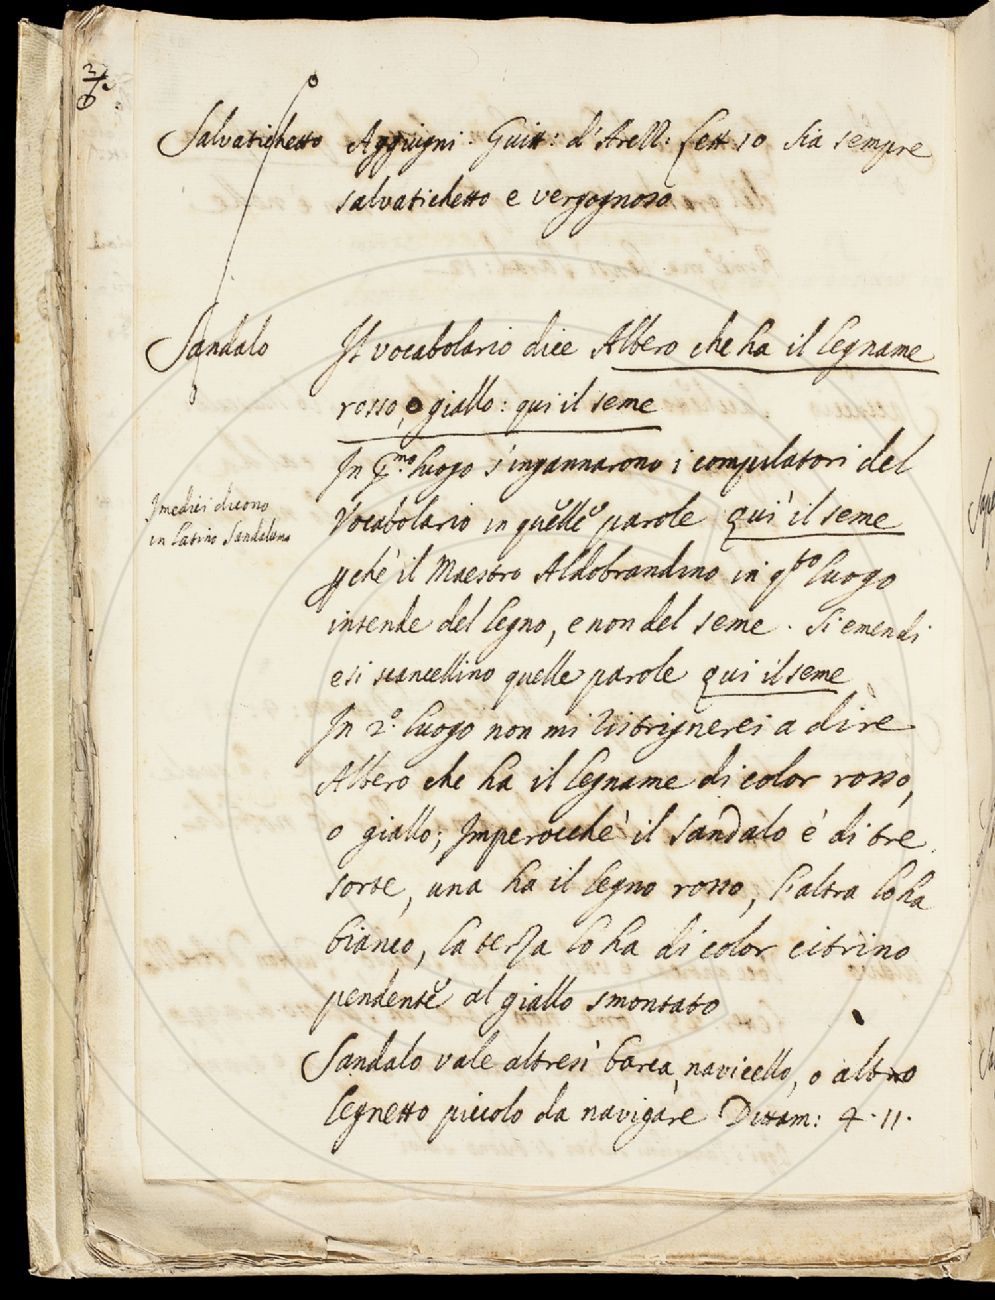 Salvatichetto Aggiugni: Guitt: d'Arell: Lett 10 Sia sempre
salvatichetto e vergognoso
Sandalo Il vocabolario dice Albero che ha il legname
rosso, o giallo: qui il seme
In Pmo. luogo s'ingannarono i compilatori del
Vocabolario in quelle parole qui il seme
I medici dicono
in latino Sandalum
pche il Maestro Aldobrandino in qto luogo
intende del legno, e non del seme. Si emendi
e si scancellino quelle parole qui il seme
In 2º luogo non mi ristrignerei a dire
Albero che ha il legname di color rosso,
o giallo; Imperocche' il sandalo e' di tre
sorte, una ha il legno rosso, l'altra lo ha
bianco, la terza lo ha di color citrino
pendente al giallo smontato
Sandalo vale altresi' barca, navicello, o altro
legnetto piccolo da navigare Dittam: 4. 11.